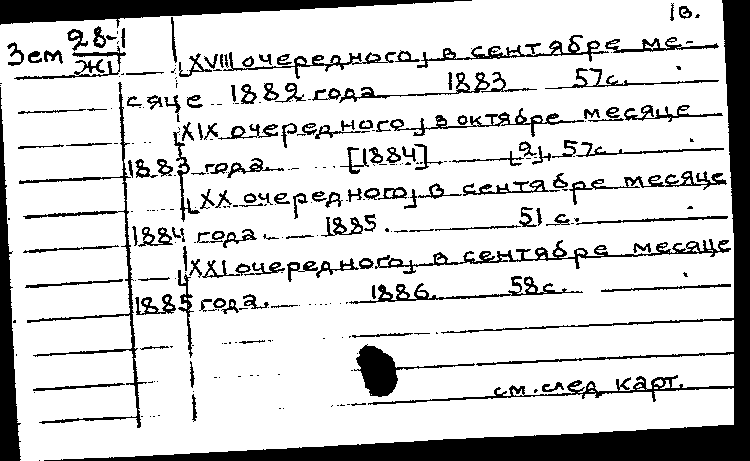 1в.
Зем 28-1
ЖІ
[XVIII очередного] в сентябре ме-
сяце 1882 года 1883 57с.
[XIX очередного] в октябре месяце
1883 года. [1884] [2], 57с.
[XX очередного] в сентябре месяце
1884 года. 1885. 51 с.
[XXI очередного] в сентябре месяце
1885 года. 1886. 58с.
см. след карт.